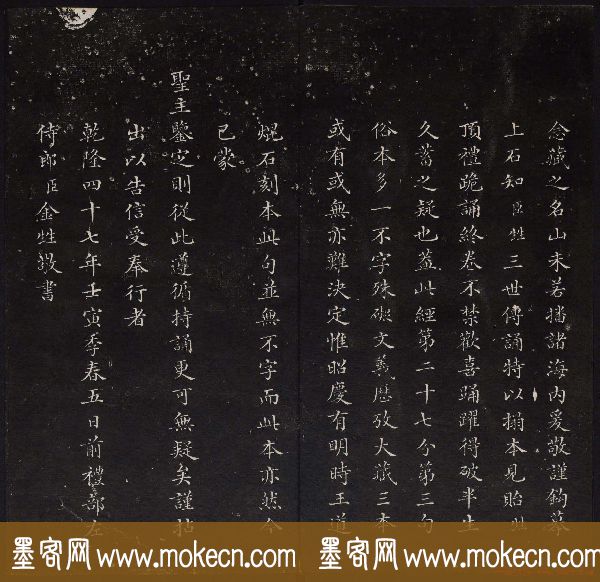 念藏之名山未若播諸海內爰敬謹鈎摹
上石知臣甡三世傳誦特以搨本見貽
頂禮跪誦終卷不禁歡喜踊躍得破半生
久蓄之疑也蓋此經第二十七分第三句
俗本多一不字殊礙文義歷攷大藏三本
或有或無亦難決定惟昭慶有明時王道
焜石刻本此句並無不字而此本亦然今
已蒙
聖主鑒定則從此遵循持誦更可無疑矣謹
出以告信受奉行者
乾隆四十七年壬寅季春五日前禮部左
侍郎臣金甡敬書
墨客网www.mokecn.com
墨客网www.mokecn.com